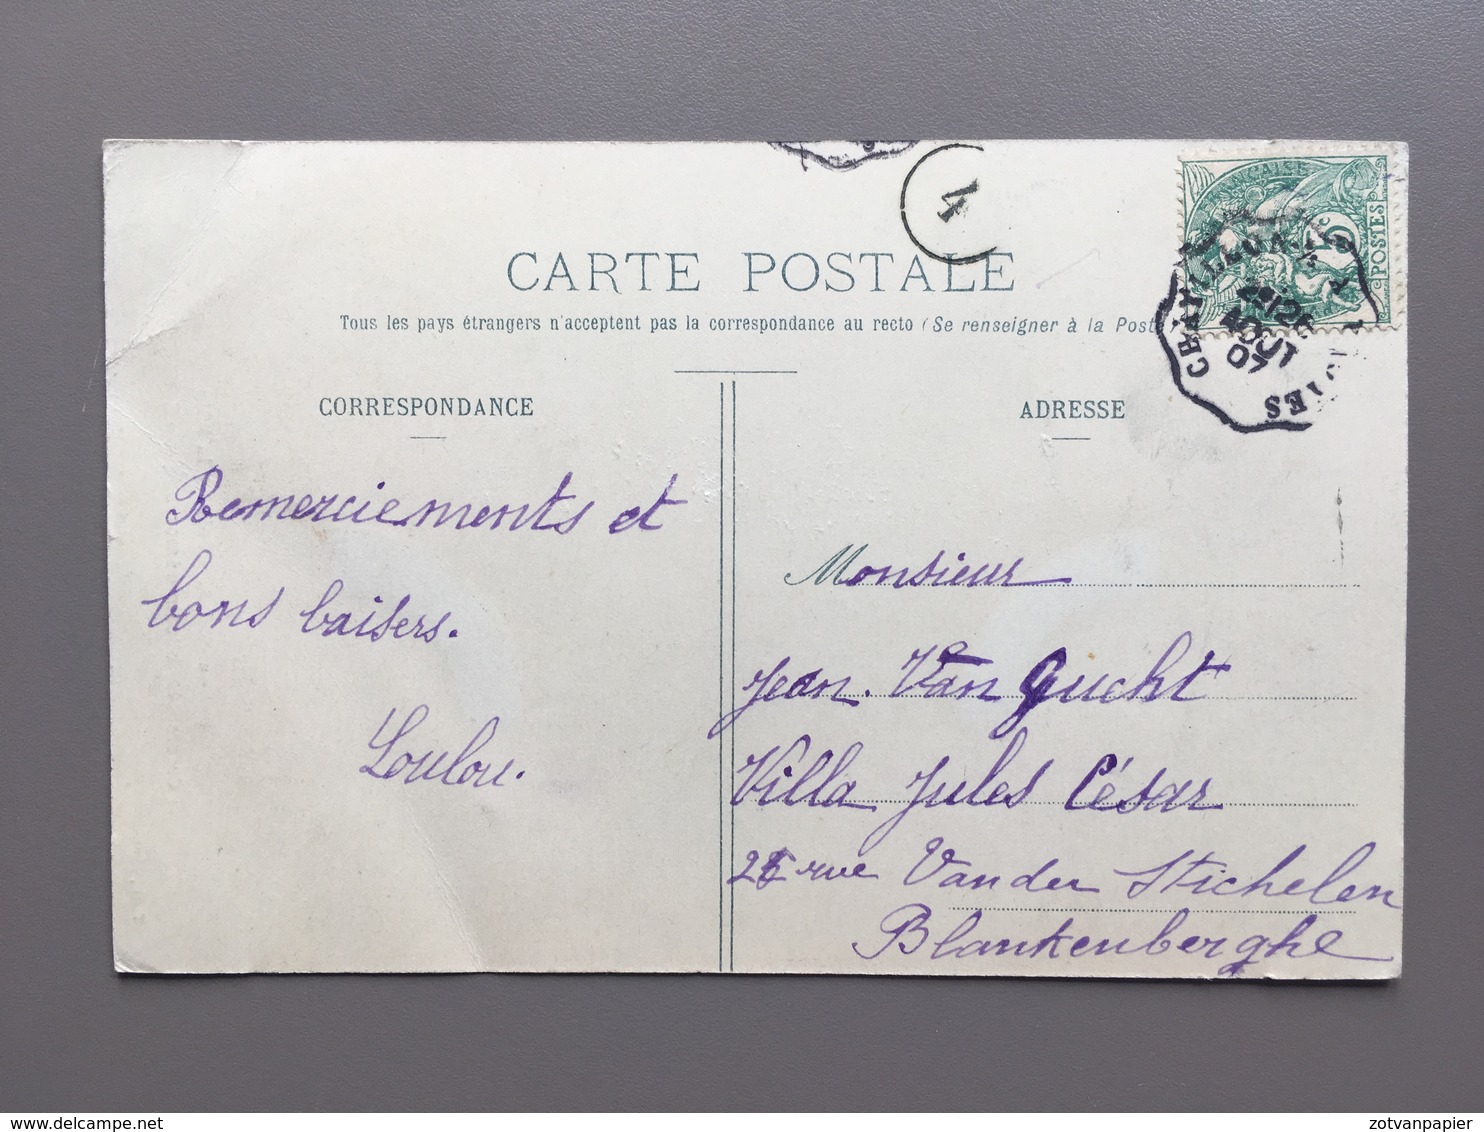 4
FRANÇAISE
5c
POSTES
26
AOUT
07
CARTE POSTALE
Tous les pays étrangers n'acceptent pas la correspondance au recto (Se renseigner à la Poste
CORRESPONDANCE
ADRESSE
Remerciements et
bons baisers.
Loulou.
Monsieur
Jean. Van Gucht
Villa Jules César
rue Van der Stichelen
Blankenberghe
delcampe.net
zotvanpapier